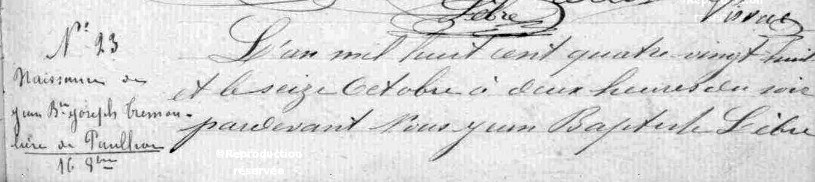 Lèbre
N° 23
Naissance de
Jean Bte Joseph Tremou-
lière de Paulhac
16 8bre
L'an mil huit cent quatre-vingt huit
et le seize Octobre à deux heures du soir
pardevant Nous Jean Baptiste Lèbre
©Reproduction
réservée